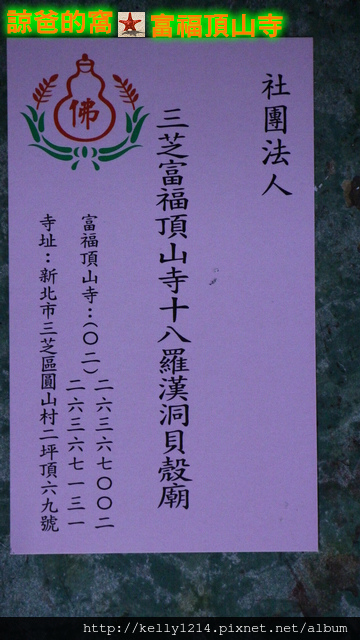 諒爸的窩 富福頂山寺
佛
社團法人
三芝富福頂山寺十八羅漢洞貝殼廟
富福頂山寺：(〇二)二六三六七〇〇二
二六三六七一三一
寺址：新北市三芝區圓山村二坪頂六九號
http://kelly1214.pixnet.net/album